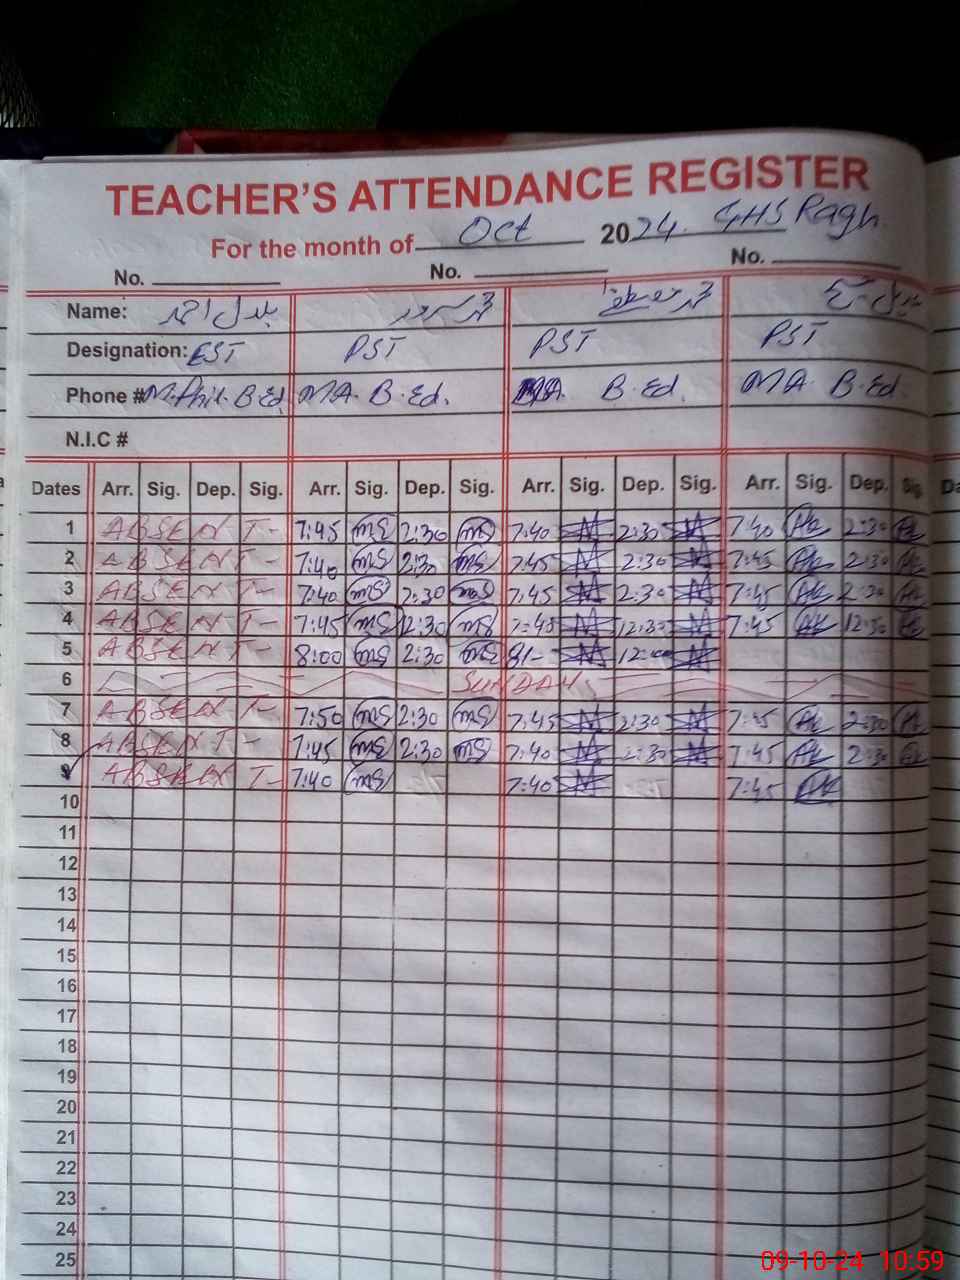 TEACHER'S ATTENDANCE REGISTER
For the month of Oct 2024. GHS Ragh
No. No. No.
Name: بلال احمد محمد سرور محمد
Designation: EST PST PST PST
Phone # M.Phil. B.Ed MA. B.Ed. MA. B.Ed. MA. B.Ed.
N.I.C #
Dates Arr. Sig. Dep. Sig. Arr. Sig. Dep. Sig. Arr. Sig. Dep. Sig. Arr. Sig. Dep. Sig. Da
1 ABSENT- 7:45 MS 2:30 MS 7:40 2:30 7:40 2:30
2 ABSENT- 7:40 MS 2:30 MS 7:45 2:30 7:45 2:30
3 ABSENT- 7:40 MS 2:30 MS 7:45 2:30 7:45 2:30
4 ABSENT- 7:45 MS 12:30 MS 7:45 12:30 7:45 12:30
5 ABSENT- 8:00 MS 2:30 MS 8/-
6 SUNDAY
7 ABSENT- 7:50 MS 2:30 MS 7:45 2:30 7:45 2:30
8 ABSENT- 7:45 MS 2:30 MS 7:40 2:30 7:45 2:30
9 ABSENT- 7:40 MS 7:40 7:45
10
11
12
13
14
15
16
17
18
19
20
21
22
23
24
25
09-10-24 10:59